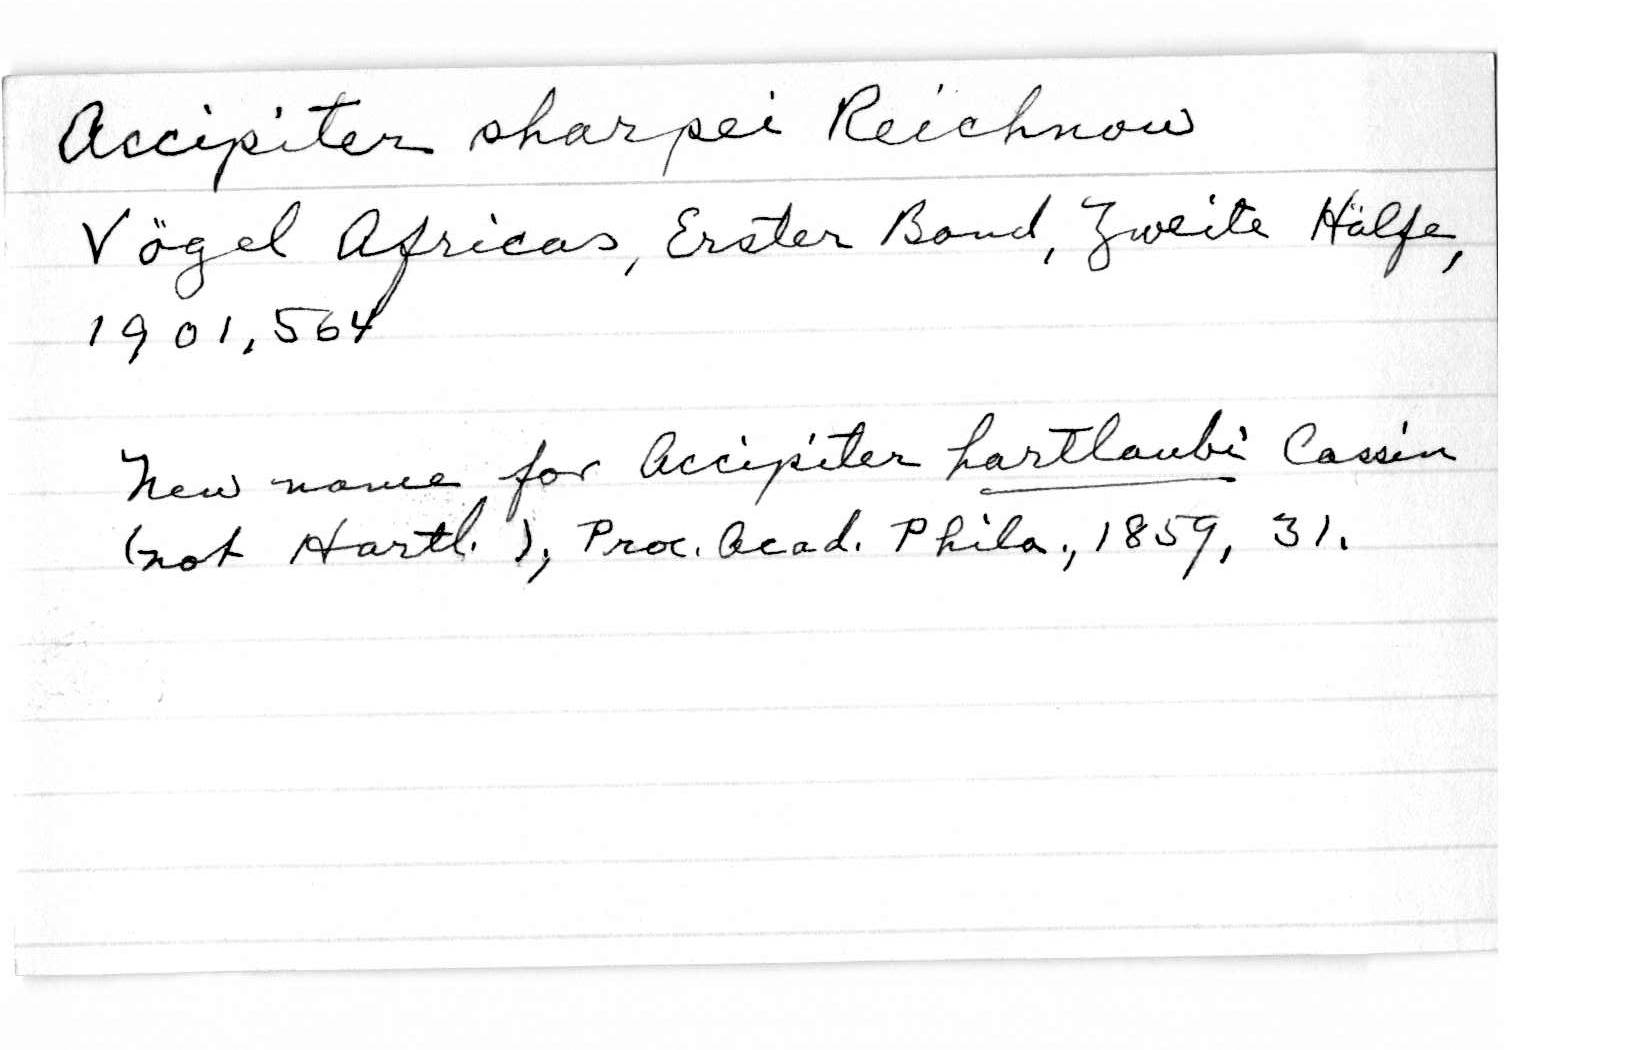 Accipiter sharpei Reichnow
Vögel Africas, Erster Band, Zweite Hälfe,
1901, 564
New name for Accipiter hartlaubi Cassin
(not Hartl.), Proc. Acad. Phila., 1859, 31.